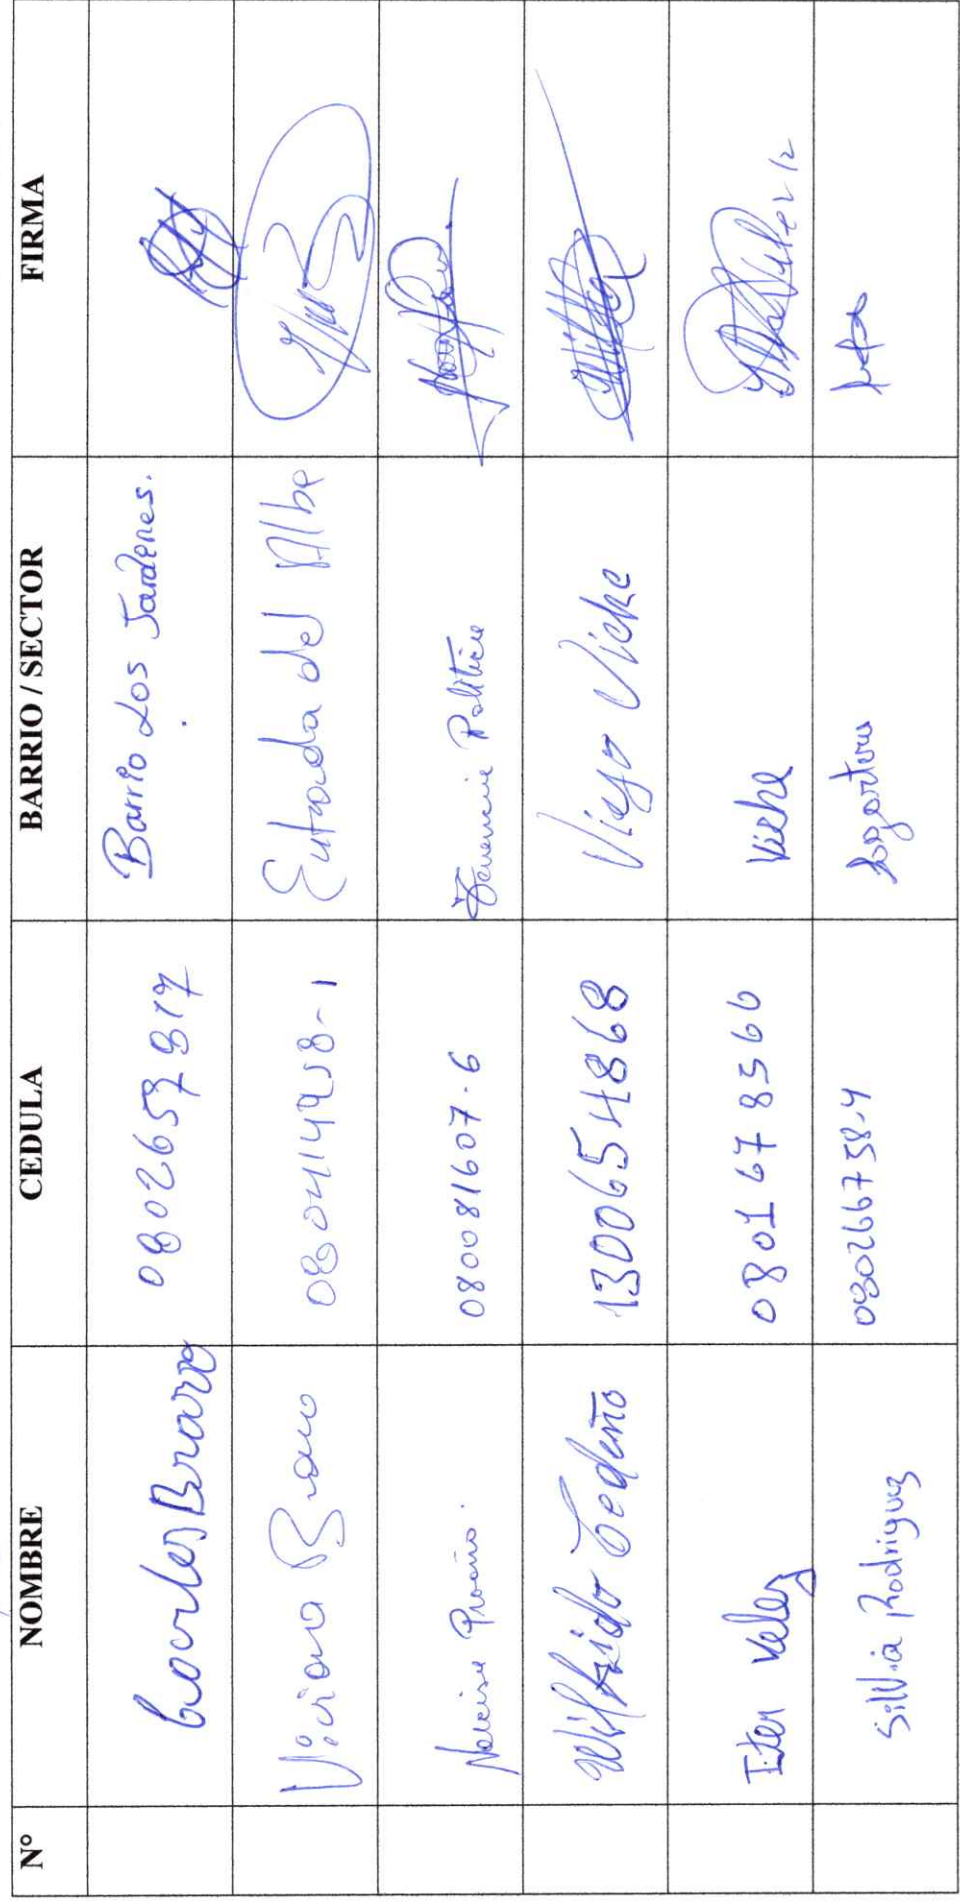 N° NOMBRE CEDULA BARRIO / SECTOR FIRMA
Carlos Bravo 0802657817 Barrio Los Jardenes.
Viviana Bravo 080414958-1 Entrada del Albe
Narcisa Proaño. 080081607-6 Tenencia Politica
Wilfrido Cedeño 1300654868 Viejo Viche
Iter Velez 0801678566 Viche
Silvia Rodriguez 080266758-4